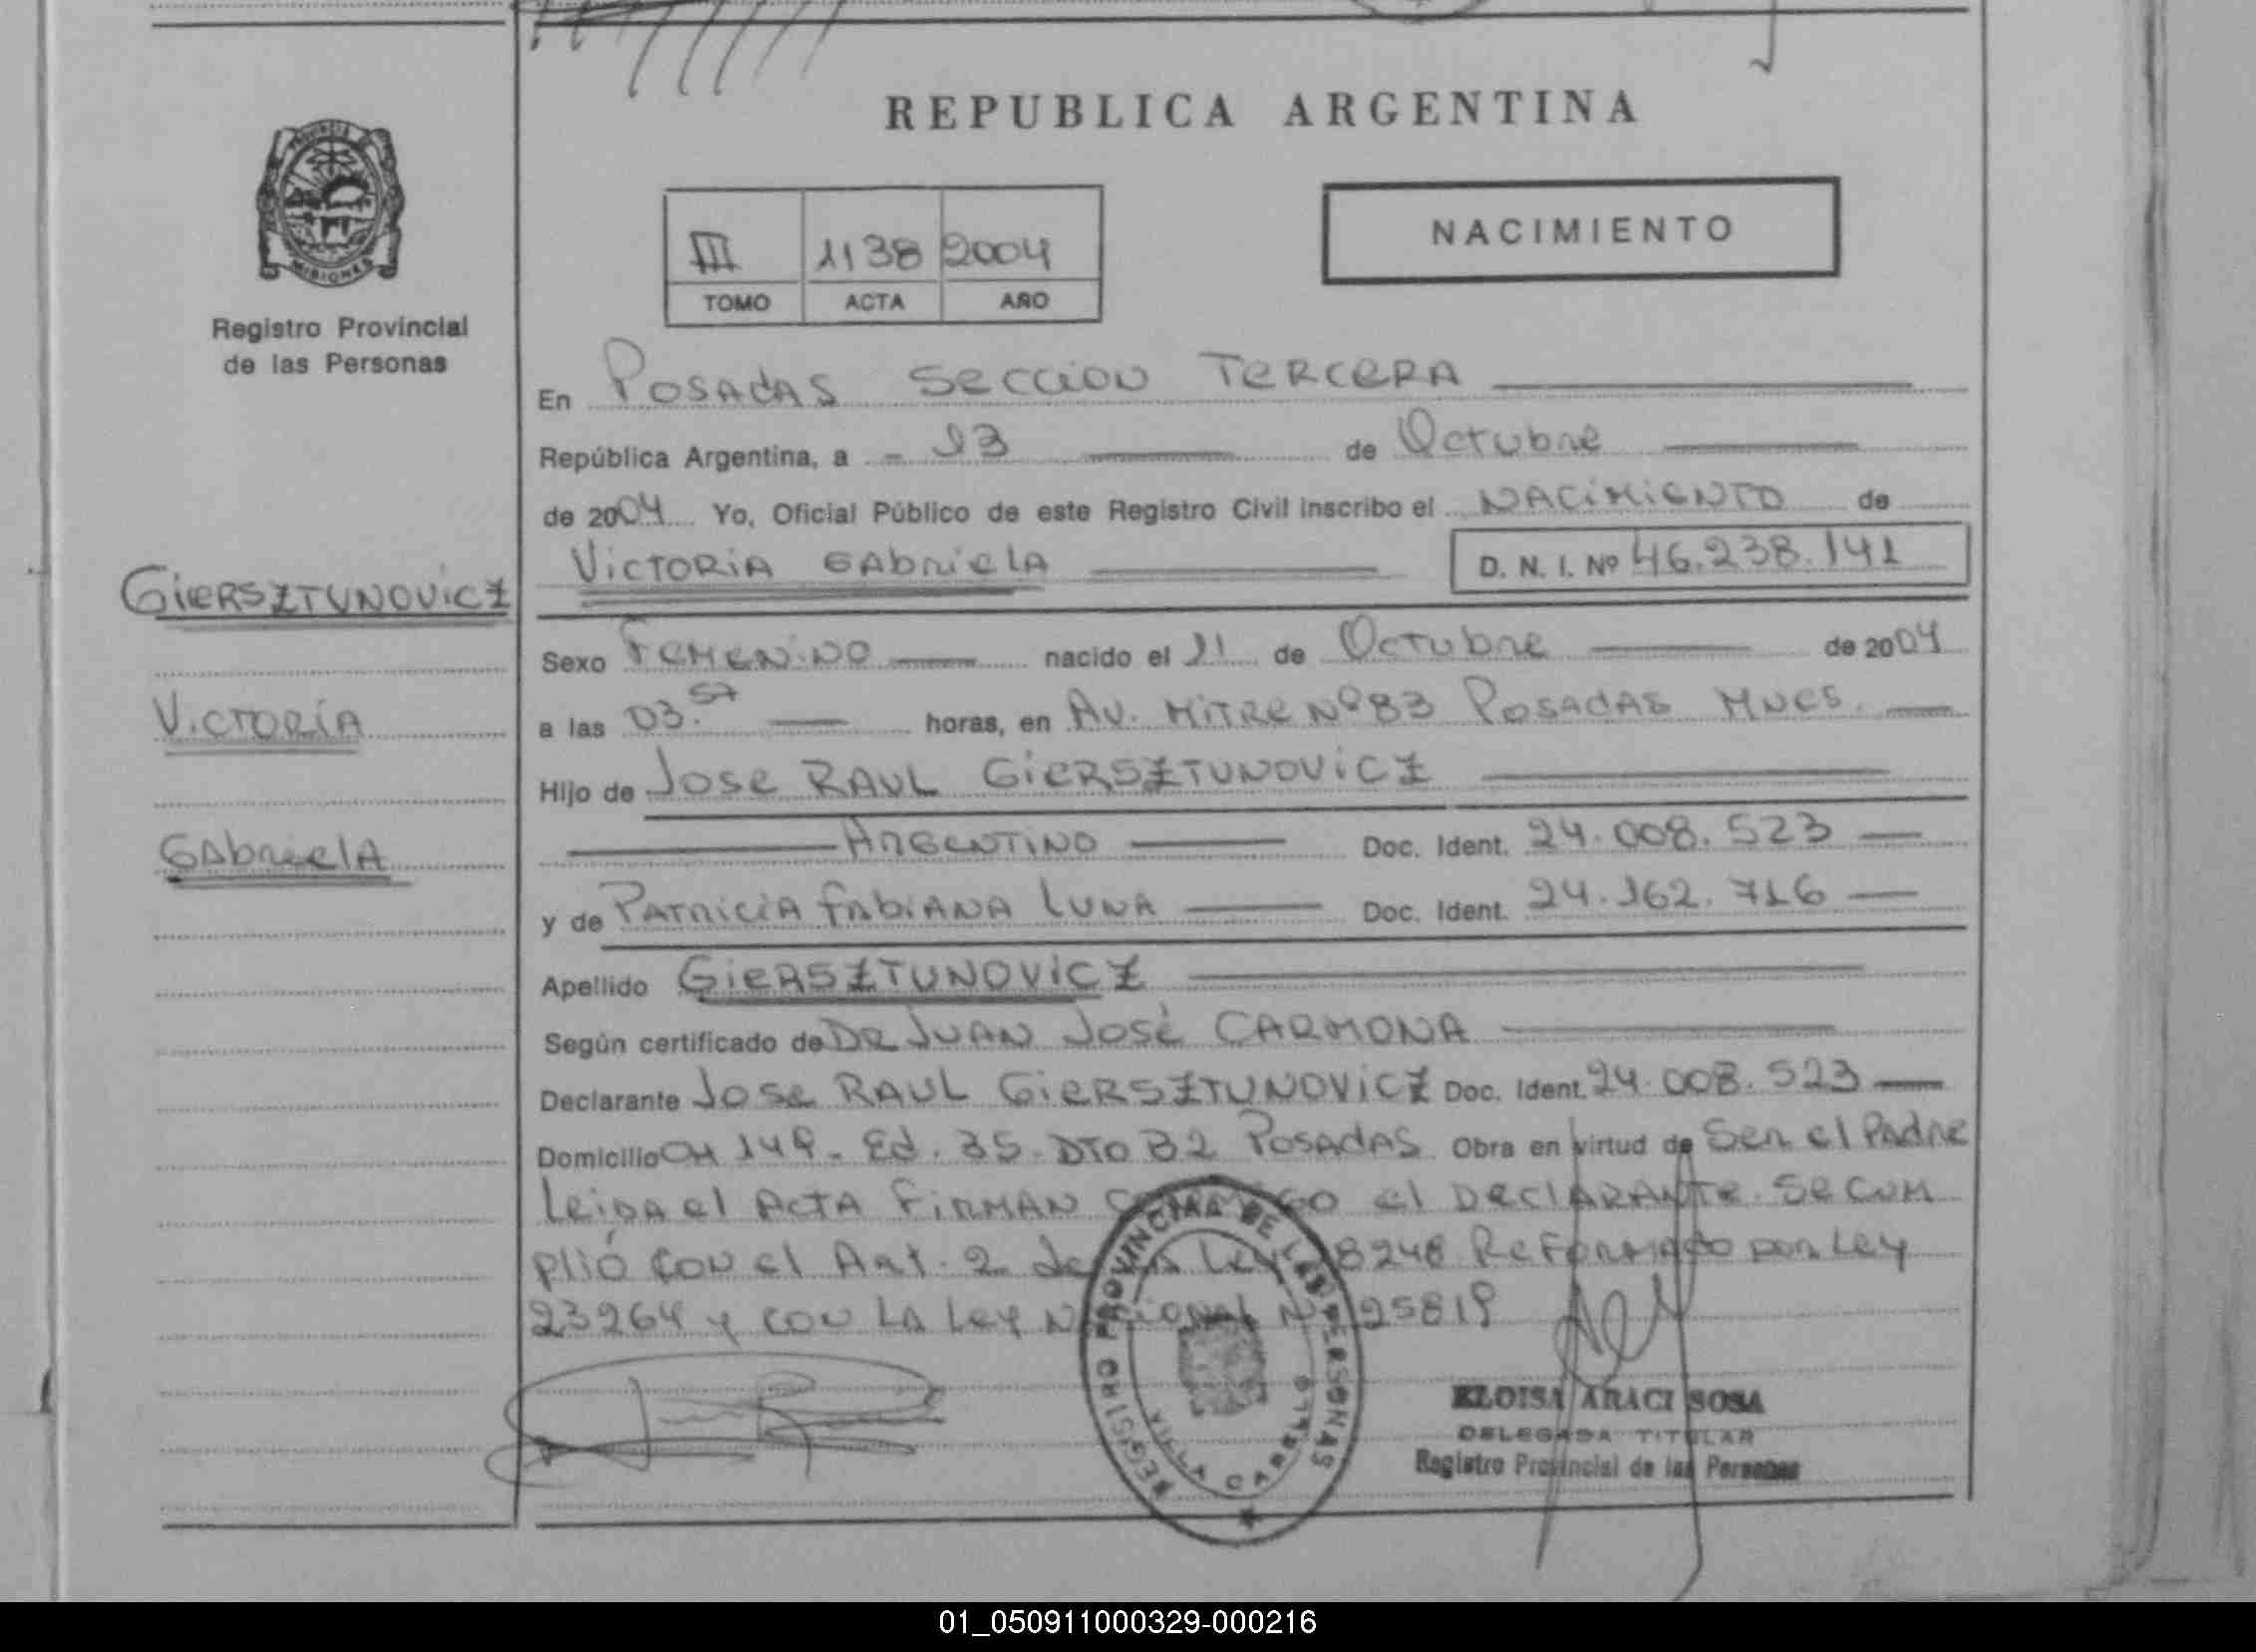 REPUBLICA ARGENTINA
PROVINCIA
MISIONES
Registro Provincial
de las Personas
III 1138 2004
TOMO ACTA AÑO
NACIMIENTO
En POSADAS SECCION TERCERA
República Argentina, a - 13 de Octubre
de 2004 Yo, Oficial Público de este Registro Civil inscribo el NACIMIENTO de
VICTORIA GABRIELA D. N. I. Nº 46.238.141
GIERSZTUNOVICZ
VICTORIA
GABRIELA
Sexo FEMENINO nacido el 11 de Octubre de 2004
a las 03.57 horas, en AV. MITRE Nº 83 POSADAS MNES.
Hijo de JOSE RAUL GIERSZTUNOVICZ
ARGENTINO Doc. Ident. 24.008.523
y de PATRICIA FABIANA LUNA Doc. Ident. 24.162.716
Apellido GIERSZTUNOVICZ
Según certificado de DR JUAN JOSÉ CARMONA
Declarante JOSE RAUL GIERSZTUNOVICZ Doc. Ident. 24.008.523
Domicilio CH 149 - Ed. 35 - DTO B2 POSADAS Obra en virtud de Ser el Padre
Leida el ACTA FIRMAN el DECLARANTE. SE CUM
plió con el Art. 2 de la Ley 18248 Reformado por Ley
23264 y con LA Ley Nacional Nº 25819
REGISTRO PROVINCIAL DE LAS PERSONAS
VILLA CABELLO
ELOISA ARACI SOSA
DELEGADA TITULAR
Registro Provincial de las Personas
01_050911000329-000216